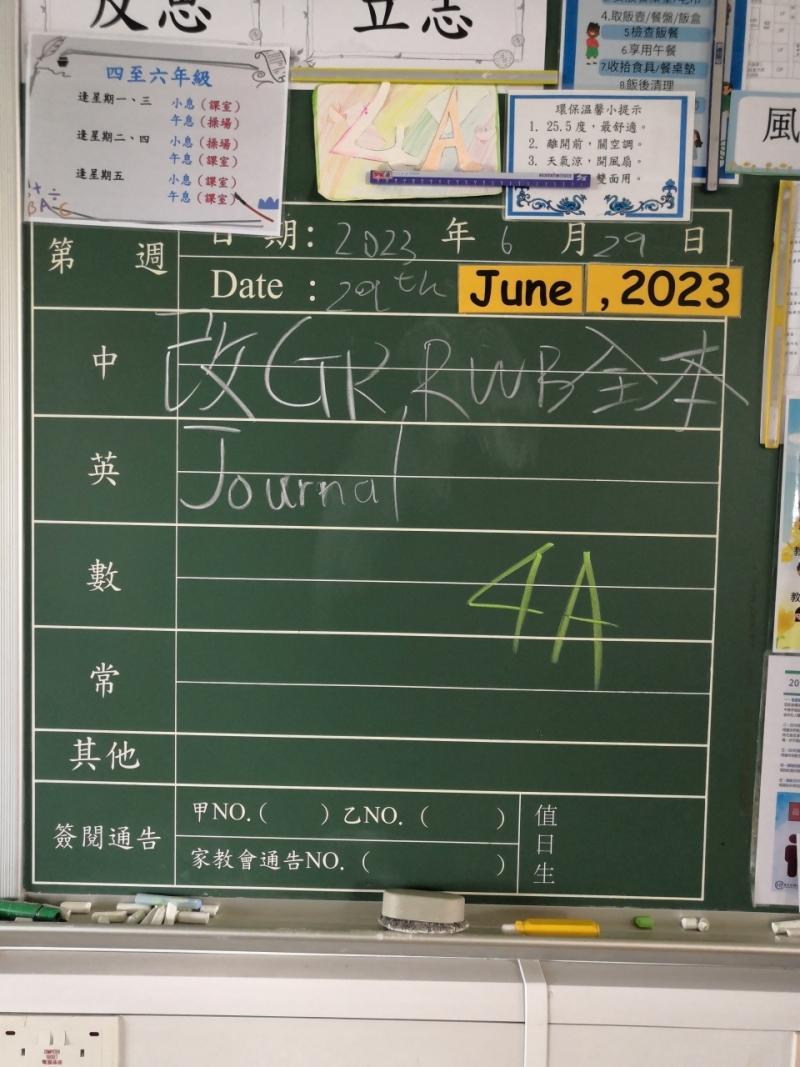 反思
立志
四至六年級
逢星期一、三 小息(課室)
午息(操場)
逢星期二、四 小息(操場)
午息(課室)
逢星期五 小息(課室)
午息(課室)
4A
4.取飯壺/餐盤/飯盒
5檢查飯餐
6.享用午餐
7.收拾食具/餐桌墊
8.飯後清理
環保溫馨小提示
1. 25.5度,最舒適。
2. 離開前,關空調。
3. 天氣涼,開風扇。
雙面用。
風
第 週
日 期: 2023 年 6 月 29 日
Date : 29th June , 2023
中 改GR, RWB全本
英 Journal
數
4A
常
其他
簽閱通告 甲NO.( ) 乙NO. ( )
家教會通告NO. ( )
值日生